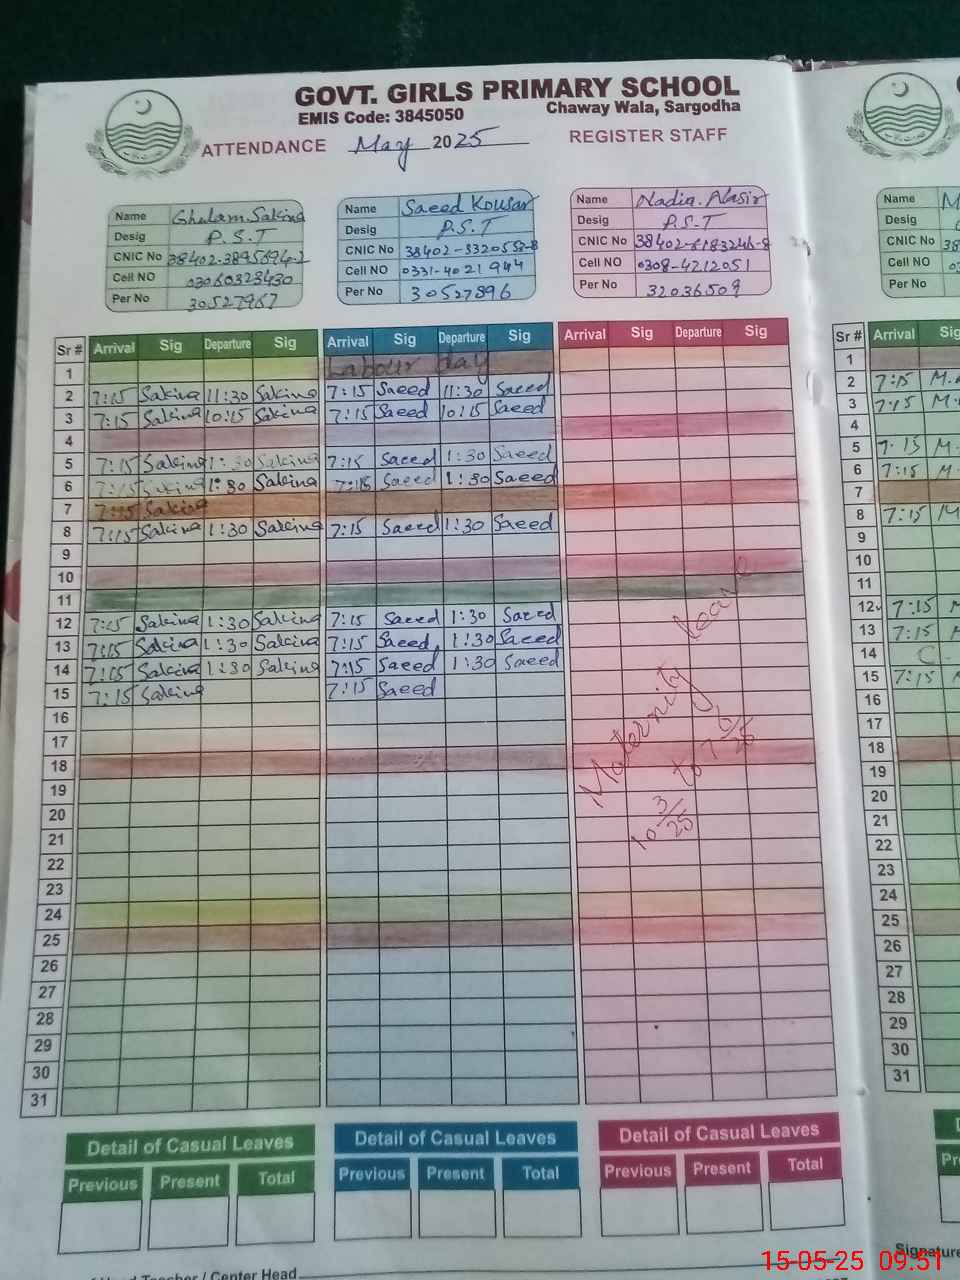 GOVT. GIRLS PRIMARY SCHOOL
EMIS Code: 3845050 Chaway Wala, Sargodha
ATTENDANCE May 2025 REGISTER STAFF
Name Ghulam Sakina
Desig P.S.T
CNIC No 38402-3895694-2
Cell NO 03060323430
Per No 30527967
Name Saeed Kousar
Desig P.S.T
CNIC No
Cell NO 0331-4021944
Per No 30527896
Name Nadia
Desig P.S.T
CNIC No 38402-6183246-8
Cell NO 0308-4212051
Per No 32036509
Name
Desig
CNIC No 38
Cell NO
Per No
Sr # Arrival Sig Departure Sig Arrival Sig Departure Sig Arrival Sig Departure Sig Sr # Arrival
1 Labour day 1
2 7:15 Sakina 11:30 Sakina 7:15 Saeed 11:30 Saeed 2 7:15 M.
3 7:15 Sakina 10:15 Sakina 7:15 Saeed 10:15 Saeed 3 7:15 M.
4 4
5 7:15 Sakina 1:30 Sakina 7:15 Saeed 1:30 Saeed 5 7:15 M.
6 7:15 Sakina 1:30 Sakina 7:15 Saeed 1:30 Saeed 6 7:15 M.
7 7:15 Sakina 7
8 7:15 Sakina 1:30 Sakina 7:15 Saeed 1:30 Saeed 8 7:15 M
9 9
10 10
11 11
12 7:15 Sakina 1:30 Sakina 7:15 Saeed 1:30 Saeed 12 7:15 M
13 7:15 Sakina 1:30 Sakina 7:15 Saeed 1:30 Saeed 13 7:15 M
14 7:15 Sakina 1:30 Sakina 7:15 Saeed 1:30 Saeed 14 C.
15 7:15 Sakina 7:15 Saeed 15 7:15 M
16 16
17 17
18 18
19 19
20 20
21 21
22 22
23 23
24 24
25 25
26 26
27 27
28 28
29 29
30 30
31 31
Maternity leave
10 3/25 to 7 6/25
Detail of Casual Leaves Detail of Casual Leaves Detail of Casual Leaves
Previous Present Total Previous Present Total Previous Present Total
Head Teacher / Center Head
Signature
15-05-25 09:51